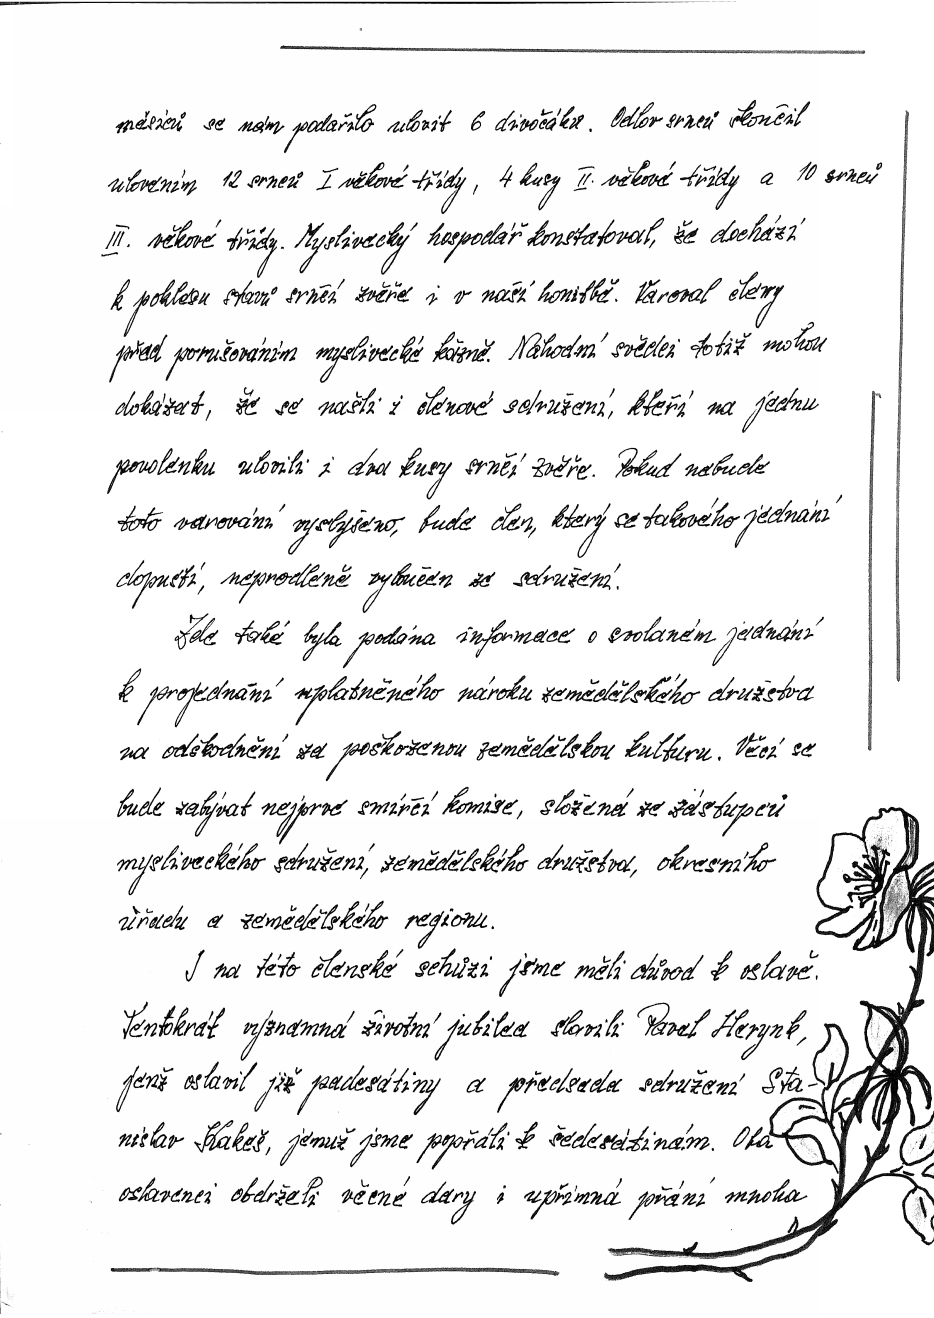 měsíců se nám podařilo ulovit 6 divočáků. Odlov srnců skončil
ulovením 12 srnců I věkové třídy, 4 kusy II. věkové třídy a 10 srnců
III. věkové třídy. Myslivecký hospodář konstatoval, že dochází
k poklesu stavů srnčí zvěře i v naší honitbě. Varoval členy
před porušováním myslivecké kázně. Náhodní svědci totiž mohou
dokázat, že se našli i členové sdružení, kteří na jednu
povolenku ulovili i dva kusy srnčí zvěře. Pokud nebude
toto varování vyslyšeno, bude člen, který se takového jednání
dopustí, neprodleně vyloučen ze sdružení.
Zde také byla podána informace o svolaném jednání
k projednání uplatněného nároku zemědělského družstva
na odškodnění za poškozenou zemědělskou kulturu. Věcí se
bude zabývat nejprve smírčí komise, složená ze zástupců
mysliveckého sdružení, zemědělského družstva, okresního
úřadu a zemědělského regionu.
I na této členské schůzi jsme měli důvod k oslavě.
Tentokrát významná životní jubilea slavili Pavel Herynk,
jenž oslavil již padesátiny a předseda sdružení Sta-
nislav Kakeš, jemuž jsme popřáli k šedesátinám. Oba
oslavenci obdrželi věcné dary i upřímná přání mnoha